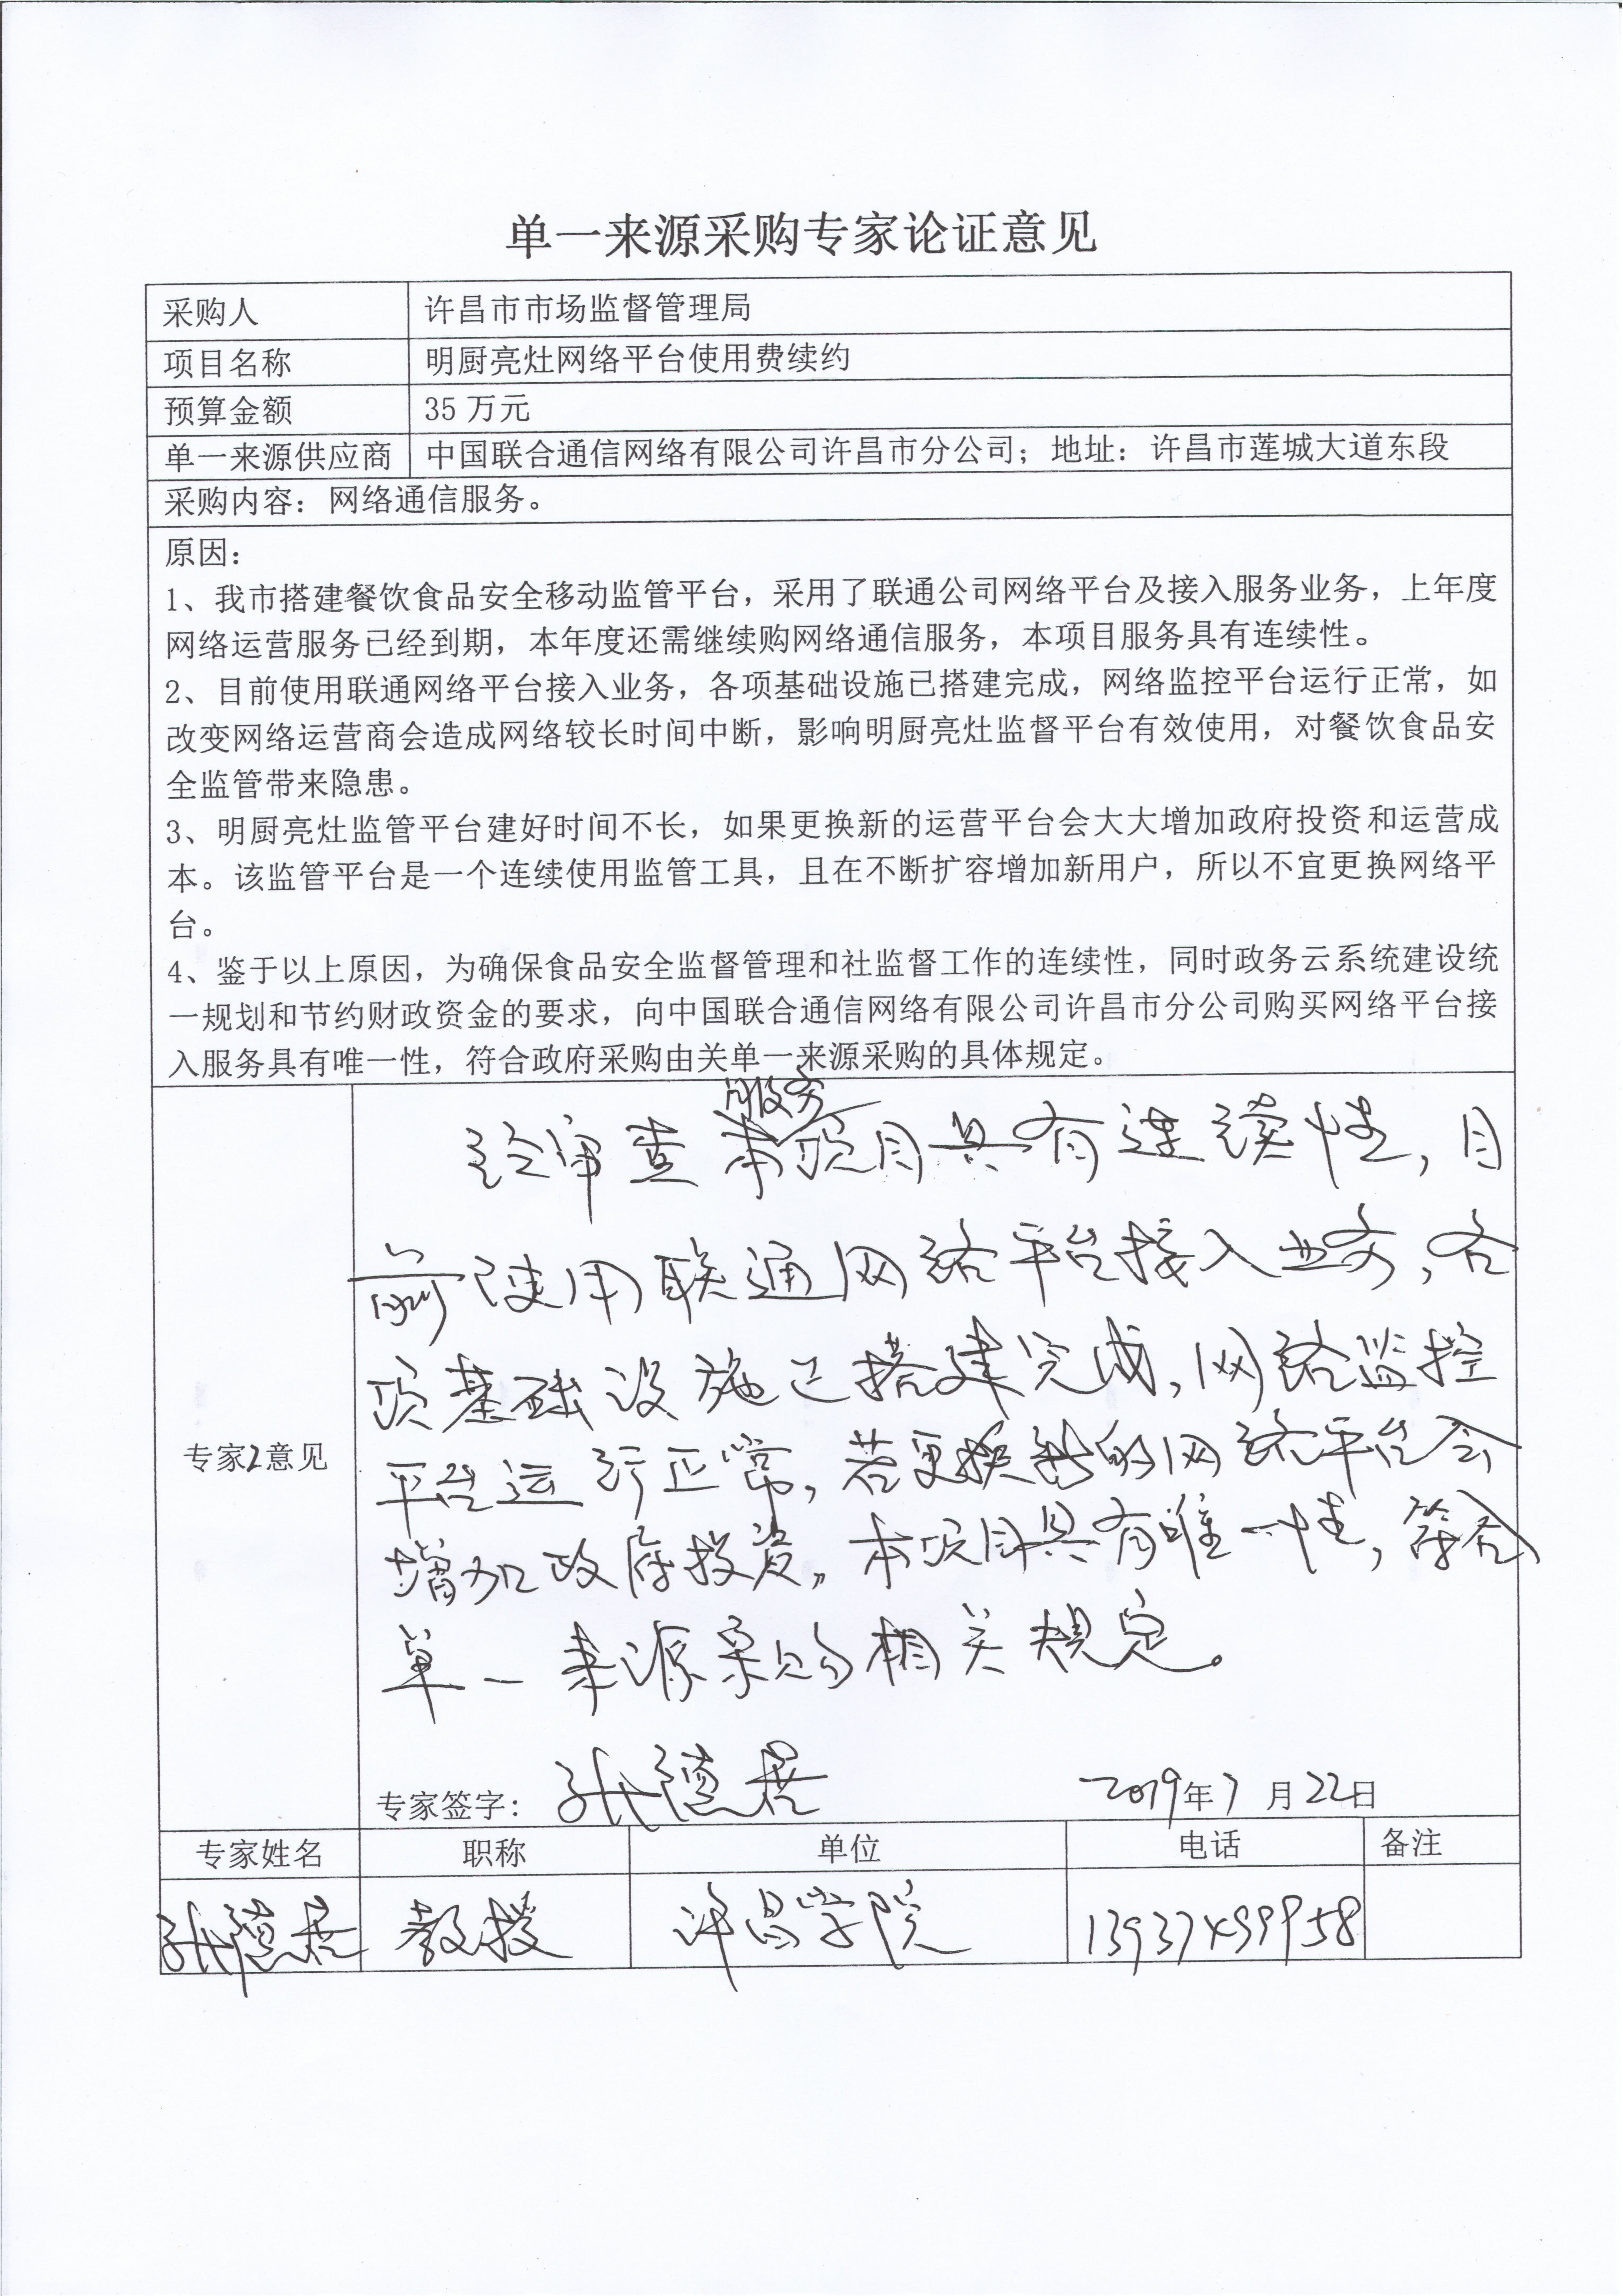 单一来源采购专家论证意见
采购人 许昌市市场监督管理局
项目名称 明厨亮灶网络平台使用费续约
预算金额 35 万元
单一来源供应商 中国联合通信网络有限公司许昌市分公司；地址：许昌市莲城大道东段
采购内容：网络通信服务。
原因：
1、我市搭建餐饮食品安全移动监管平台，采用了联通公司网络平台及接入服务业务，上年度
网络运营服务已经到期，本年度还需继续购网络通信服务，本项目服务具有连续性。
2、目前使用联通网络平台接入业务，各项基础设施已搭建完成，网络监控平台运行正常，如
改变网络运营商会造成网络较长时间中断，影响明厨亮灶监督平台有效使用，对餐饮食品安
全监管带来隐患。
3、明厨亮灶监管平台建好时间不长，如果更换新的运营平台会大大增加政府投资和运营成
本。该监管平台是一个连续使用监管工具，且在不断扩容增加新用户，所以不宜更换网络平
台。
4、鉴于以上原因，为确保食品安全监督管理和社监督工作的连续性，同时政务云系统建设统
一规划和节约财政资金的要求，向中国联合通信网络有限公司许昌市分公司购买网络平台接
入服务具有唯一性，符合政府采购由关单一来源采购的具体规定。
服务
经审查本项目具有连续性，目
前使用联通网络平台接入业务，各
项基础设施已搭建完成，网络监控
专家2意见
平台运行正常，若更换新的网络平台会
增加政府投资。本项目具有唯一性，符合
单一来源采购相关规定。
专家签字： 2019年7月22日
专家姓名 职称 单位 电话 备注
教授 许昌学院 13937499958